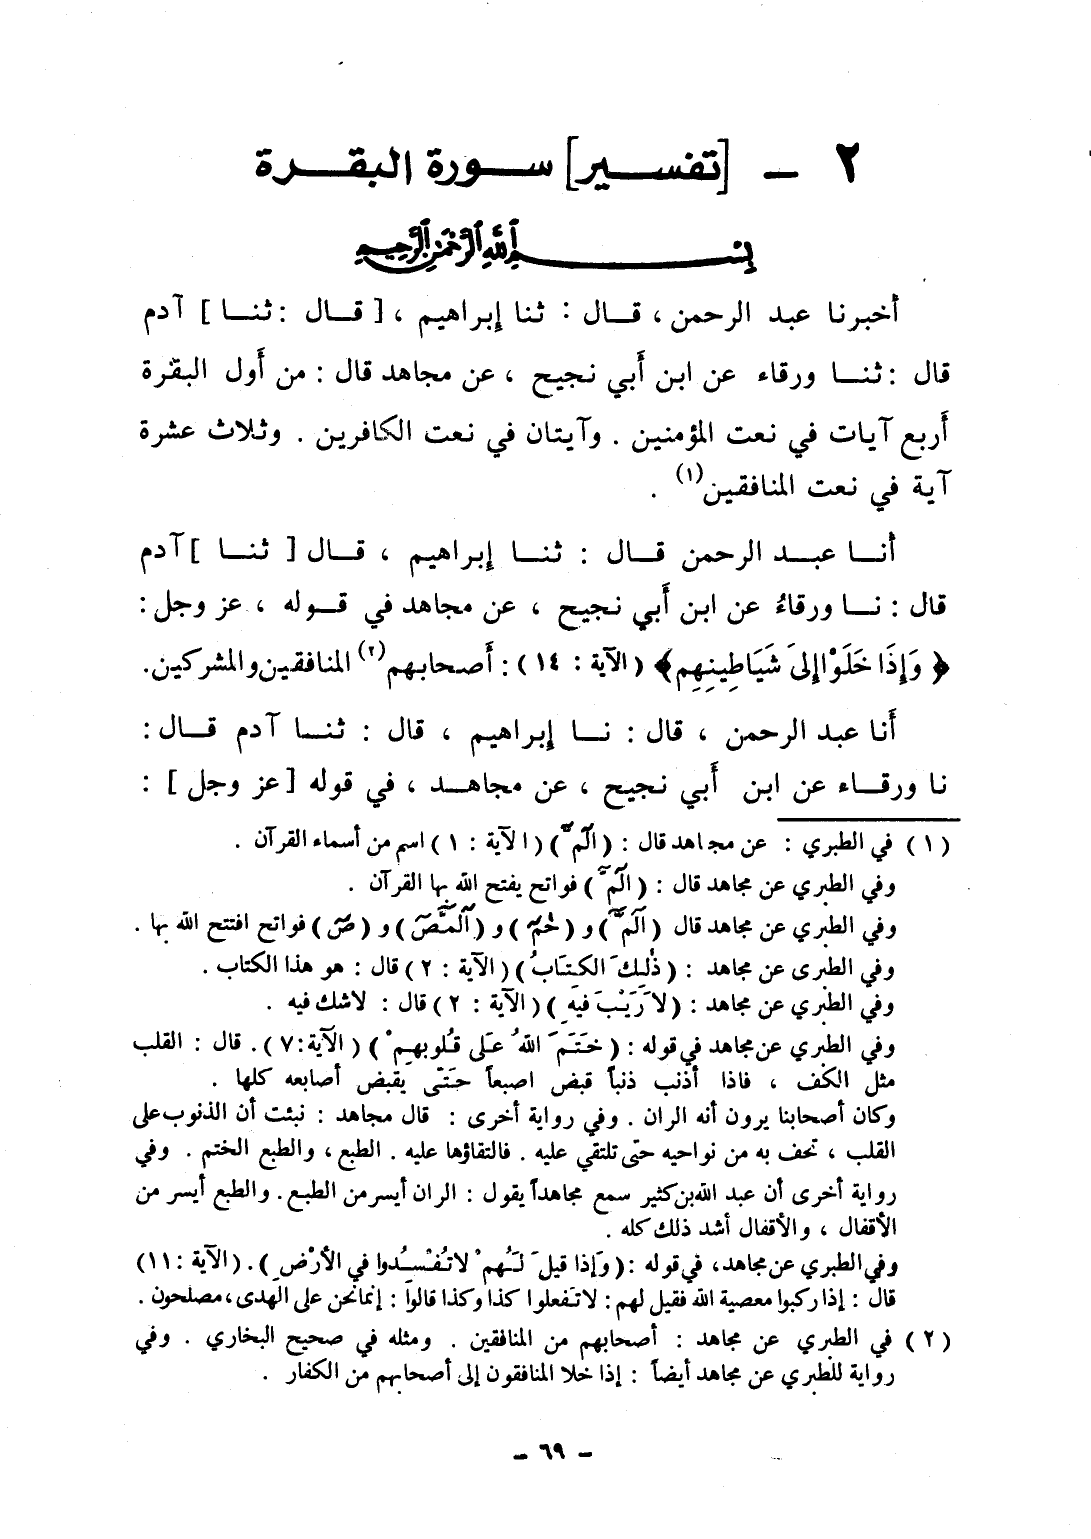 ٢ ـ [تفسير] سورة البقرة
بسم الله الرحمن الرحيم
أخبرنا عبد الرحمن ، قال : ثنا إبراهيم ، [ قال : ثنا ] آدم
قال : ثنا ورقاء عن ابن أبي نجيح ، عن مجاهد قال : من أول البقرة
أربع آيات في نعت المؤمنين . وآيتان في نعت الكافرين . وثلاث عشرة
آية في نعت المنافقين(١) .
أنا عبد الرحمن قال : ثنا إبراهيم ، قال [ ثنا ] آدم
قال : نا ورقاءُ عن ابن أبي نجيح ، عن مجاهد في قوله ، عز وجل :
﴿ وَإِذَا خَلَوْا إِلَىٰ شَيَاطِينِهِم ﴾ ( الآية : ١٤ ) : أصحابهم(٢) المنافقين والمشركين.
أنا عبد الرحمن ، قال : نا إبراهيم ، قال : ثنا آدم قال :
نا ورقاء عن ابن أبي نجيح ، عن مجاهد ، في قوله [ عز وجل ] :
(١) في الطبري : عن مجاهد قال : (الٓمٓ) ( الآية : ١ ) اسم من أسماء القرآن .
وفي الطبري عن مجاهد قال : ( الٓمٓ ) فواتح يفتح الله بها القرآن .
وفي الطبري عن مجاهد قال ( الٓمٓ ) و ( حٰمٓ ) و ( الٓمٓصٓ ) و ( صٓ ) فواتح افتتح الله بها .
وفي الطبرى عن مجاهد : ( ذٰلِكَ الكِتَابُ ) ( الآية : ٢ ) قال : هو هذا الكتاب .
وفي الطبري عن مجاهد : ( لا رَيْبَ فيهِ ) ( الآية : ٢ ) قال : لاشك فيه .
وفي الطبري عن مجاهد في قوله : ( خَتَمَ اللهُ عَلى قُلوبِهِمْ ) ( الآية :٧ ) . قال : القلب
مثل الكف ، فاذا أذنب ذنباً قبض اصبعاً حَتّى يقبض أصابعه كلها .
وكان أصحابنا يرون أنه الران . وفي رواية أخرى : قال مجاهد : نبئت أن الذنوب على
القلب ، تحف به من نواحيه حتى تلتقي عليه . فالتقاؤها عليه . الطبع ، والطبع الختم . وفي
رواية أخرى أن عبد الله بن كثير سمع مجاهداً يقول : الران أيسر من الطبع . والطبع أيسر من
الأقفال ، والأقفال أشد ذلك كله .
وفي الطبري عن مجاهد ، في قوله : ( وَإذا قيلَ لَهُمْ لاتُفْسِدُوا في الأرْضِ ) . (الآية : ١١)
قال : إذا ركبوا معصية الله فقيل لهم : لاتفعلوا كذا وكذا قالوا : إنما نحن على الهدى ، مصلحون .
(٢) في الطبري عن مجاهد : أصحابهم من المنافقين . ومثله في صحيح البخاري . وفي
رواية للطبري عن مجاهد أيضاً : إذا خلا المنافقون إلى أصحابهم من الكفار .
ـ ٦٩ ـ